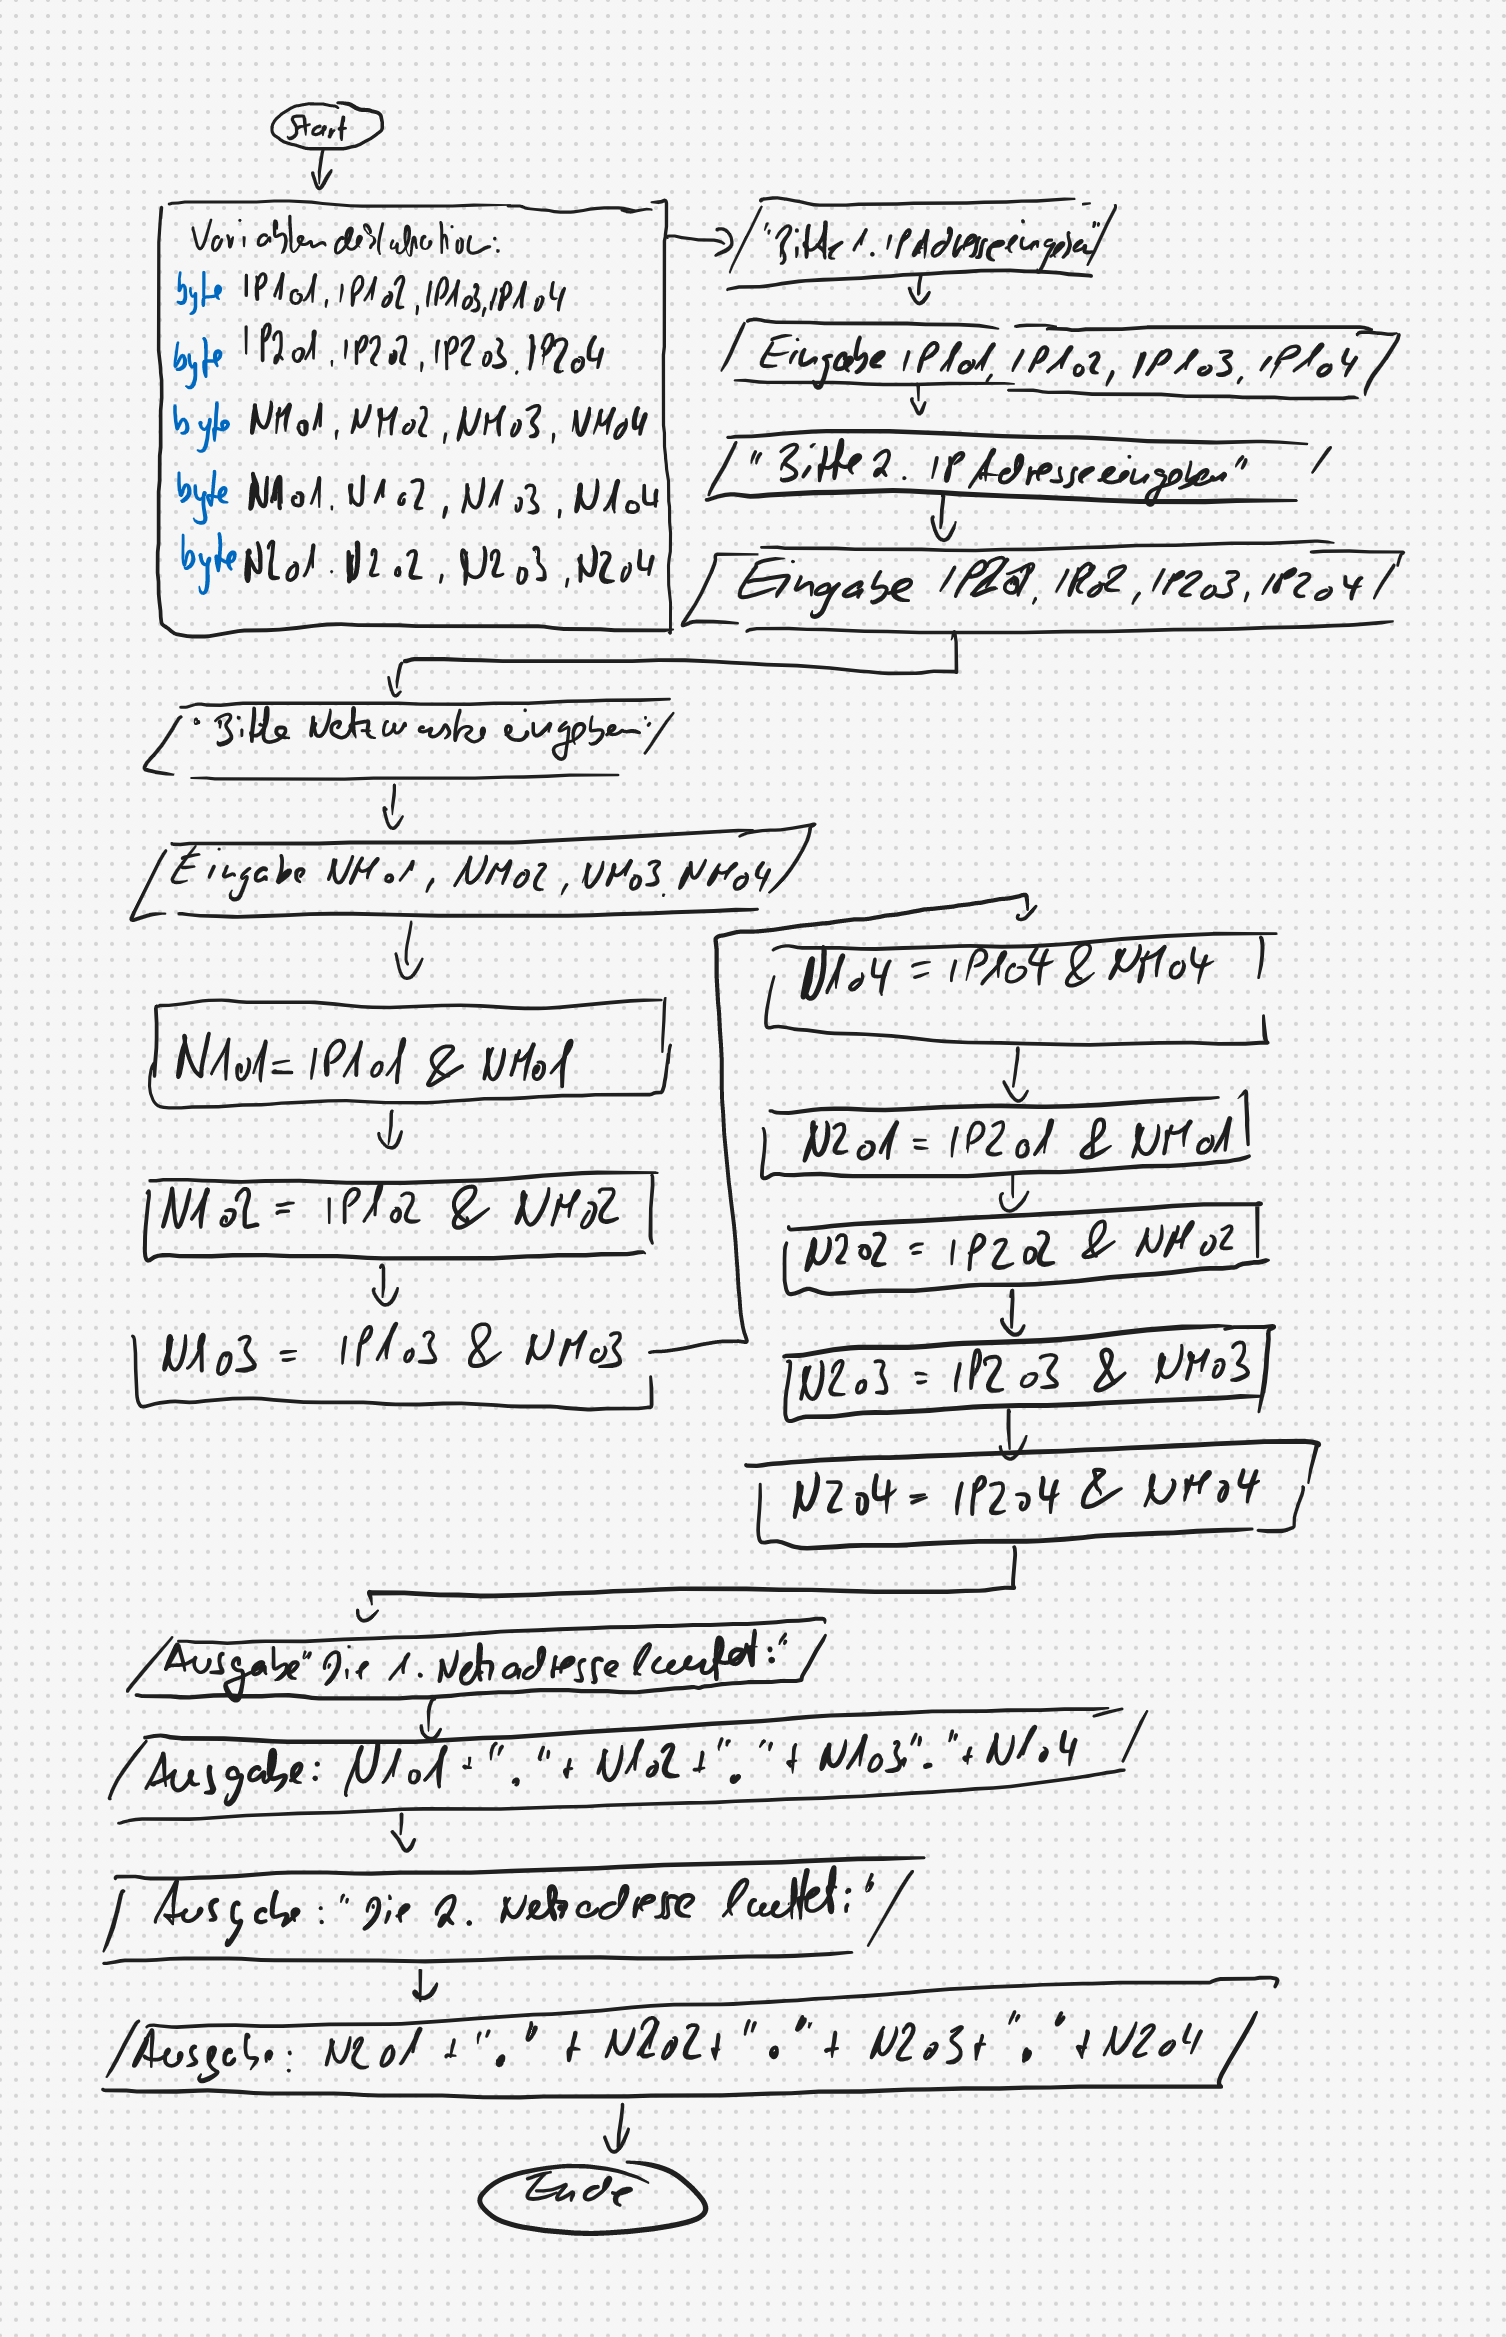 Start
Variablendeklaration:
byte IP1o1, IP1o2, IP1o3, IP1o4
byte IP2o1, IP2o2, IP2o3, IP2o4
byte NMo1, NMo2, NMo3, NMo4
byte N1o1, N1o2, N1o3, N1o4
byte N2o1, N2o2, N2o3, N2o4
"Bitte 1. IP Adresse eingeben"
Eingabe IP1o1, IP1o2, IP1o3, IP1o4
"Bitte 2. IP Adresse eingeben"
Eingabe IP2o1, IP2o2, IP2o3, IP2o4
"Bitte Netzmaske eingeben:"
Eingabe NMo1, NMo2, NMo3, NMo4
N1o1 = IP1o1 & NMo1
N1o2 = IP1o2 & NMo2
N1o3 = IP1o3 & NMo3
N1o4 = IP1o4 & NMo4
N2o1 = IP2o1 & NMo1
N2o2 = IP2o2 & NMo2
N2o3 = IP2o3 & NMo3
N2o4 = IP2o4 & NMo4
Ausgabe "Die 1. Netzadresse lautet:"
Ausgabe: N1o1 + "." + N1o2 + "." + N1o3 "." + N1o4
Ausgabe: "Die 2. Netzadresse lauttet:"
Ausgabe: N2o1 + "." + N2o2 + "." + N2o3 + "." + N2o4
Ende